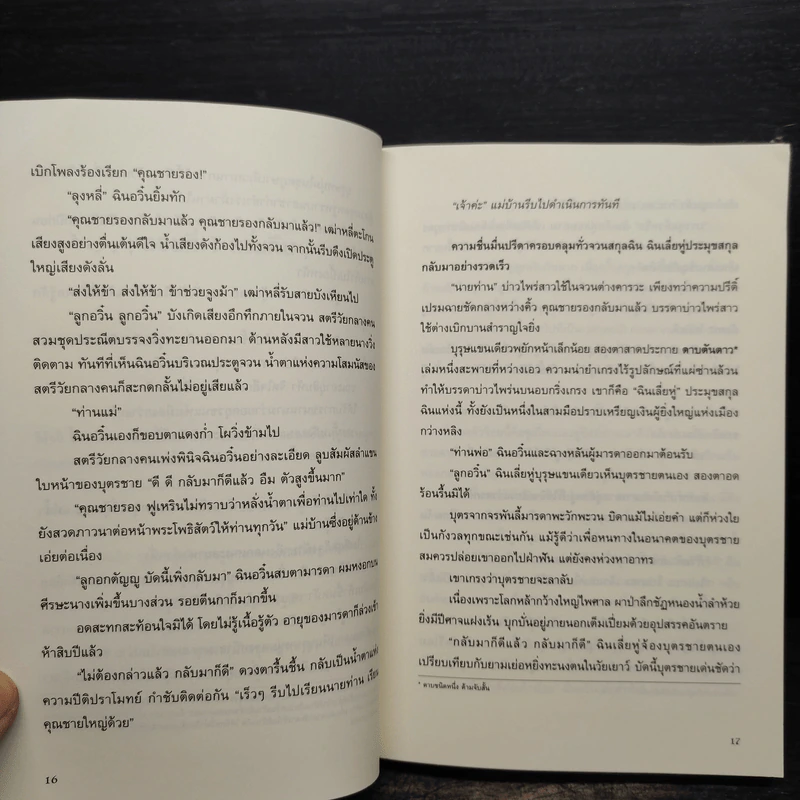 เบิกโพลงร้องเรียก “คุณชายรอง!”
“ลุงหลี่” ฉินอวิ๋นยิ้มทัก
“คุณชายรองกลับมาแล้ว คุณชายรองกลับมาแล้ว!” เฒ่าหลี่ตะโกน
เสียงสูงอย่างตื่นเต้นดีใจ น้ำเสียงดังก้องไปทั้งจวน จากนั้นรีบดึงเปิดประตู
ใหญ่เสียงดังลั่น
“ส่งให้ข้า ส่งให้ข้า ข้าช่วยจูงม้า” เฒ่าหลี่รับสายบังเหียนไป
“ลูกอวิ๋น ลูกอวิ๋น” บังเกิดเสียงอึกทึกภายในจวน สตรีวัยกลางคน
สวมชุดประณีตบรรจงวิ่งทะยานออกมา ด้านหลังมีสาวใช้หลายนางวิ่ง
ติดตาม ทันทีที่เห็นฉินอวิ๋นบริเวณประตูจวน น้ำตาแห่งความโสมนัสของ
สตรีวัยกลางคนก็สะกดกลั้นไม่อยู่เสียแล้ว
“ท่านแม่”
ฉินอวิ๋นเองก็ขอบตาแดงก่ำ โผวิ่งข้ามไป
สตรีวัยกลางคนเพ่งพินิจฉินอวิ๋นอย่างละเอียด ลูบสัมผัสลำแขน
ใบหน้าของบุตรชาย “ดี ดี กลับมาก็ดีแล้ว อืม ตัวสูงขึ้นมาก”
“คุณชายรอง ฟูเหรินไม่ทราบว่าหลั่งน้ำตาเพื่อท่านไปเท่าใด ทั้ง
ยังสวดภาวนาต่อหน้าพระโพธิสัตว์ให้ท่านทุกวัน” แม่บ้านซึ่งอยู่ด้านข้าง
เอ่ยต่อเนื่อง
“ลูกอกตัญญู บัดนี้เพิ่งกลับมา” ฉินอวิ๋นสบตามารดา ผมหงอกบน
ศีรษะนางเพิ่มขึ้นบางส่วน รอยตีนกาก็มากขึ้น
อดสะทกสะท้อนใจมิได้ โดยไม่รู้เนื้อรู้ตัว อายุของมารดาก็ล่วงเข้า
ห้าสิบปีแล้ว
“ไม่ต้องกล่าวแล้ว กลับมาก็ดี” ดวงตารื้นชื้น กลับเป็นน้ำตาแห่ง
ความปีติปราโมทย์ กำชับติดต่อกัน “เร็วๆ รีบไปเรียนนายท่าน เรียน
คุณชายใหญ่ด้วย”
16
“เจ้าค่ะ” แม่บ้านรีบไปดำเนินการทันที
ความชื่นมื่นปรีดาครอบคลุมทั่วจวนสกุลฉิน ฉินเลี่ยหู่ประมุขสกุล
กลับมาอย่างรวดเร็ว
“นายท่าน” บ่าวไพร่สาวใช้ในจวนต่างคารวะ เพียงทว่าความปรีดิ์
เปรมฉายชัดกลางหว่างคิ้ว คุณชายรองกลับมาแล้ว บรรดาบ่าวไพร่สาว
ใช้ต่างเบิกบานสำราญใจยิ่ง
บุรุษแขนเดียวพยักหน้าเล็กน้อย สองตาสาดประกาย ดาบตันดาว*
เล่มหนึ่งสะพายที่หว่างเอว ความน่ายำเกรงไร้รูปลักษณ์ที่แผ่ซ่านล้วน
ทำให้บรรดาบ่าวไพร่นบนอบกริ่งเกรง เขาก็คือ “ฉินเลี่ยหู่” ประมุขสกุล
ฉินแห่งนี้ ทั้งยังเป็นหนึ่งในสามมือปราบเหรียญเงินผู้ยิ่งใหญ่แห่งเมือง
กว่างหลิง
“ท่านพ่อ” ฉินอวิ๋นและฉางหลันผู้มารดาออกมาต้อนรับ
“ลูกอวิ๋น” ฉินเลี่ยหู่บุรุษแขนเดียวเห็นบุตรชายตนเอง สองตาอด
ร้อนรื้นมิได้
บุตรจากจรพันลี้มารดาพะวักพะวน บิดาแม้ไม่เอ่ยคำ แต่ก็ห่วงใย
เป็นกังวลทุกขณะเช่นกัน แม้รู้ดีว่าเพื่อหนทางในอนาคตของบุตรชาย
สมควรปล่อยเขาออกไปฝ่าฟัน แต่ยังคงห่วงหาอาทร
เขาเกรงว่าบุตรชายจะลาลับ
เนื่องเพราะโลกหล้ากว้างใหญ่ไพศาล ผาป่าลึกชัฏหนองน้ำลำห้วย
ยิ่งมีปีศาจแฝงเร้น บุกบั่นอยู่ภายนอกเดิมเปี่ยมด้วยอุปสรรคอันตราย
“กลับมาก็ดีแล้ว กลับมาก็ดี” ฉินเลี่ยหู่จ้องบุตรชายตนเอง
เปรียบเทียบกับยามเย่อหยิ่งทะนงตนในวัยเยาว์ บัดนี้บุตรชายเด่นชัดว่า
* ดาบชนิดหนึ่ง ด้ามจับสั้น
17